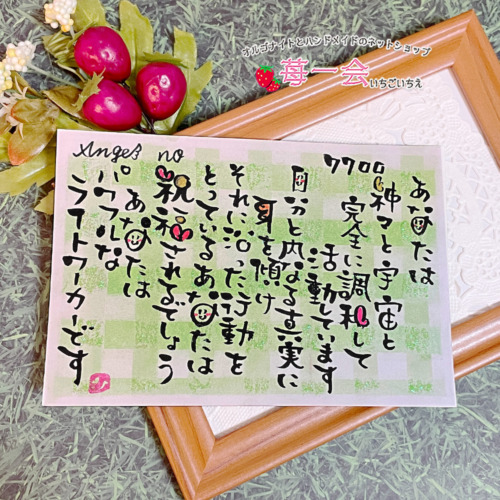 オルゴナイトとハンドメイドのネットショップ
苺一会
いちごいちえ
Angel no
7700
あなたは
神々と宇宙と
完全に調和して
活動しています
自分と内なる真実に
耳を傾け
それに沿った行動を
とっているあなたは
祝福されるでしょう
あなたは
パワフルな
ライトワーカーです